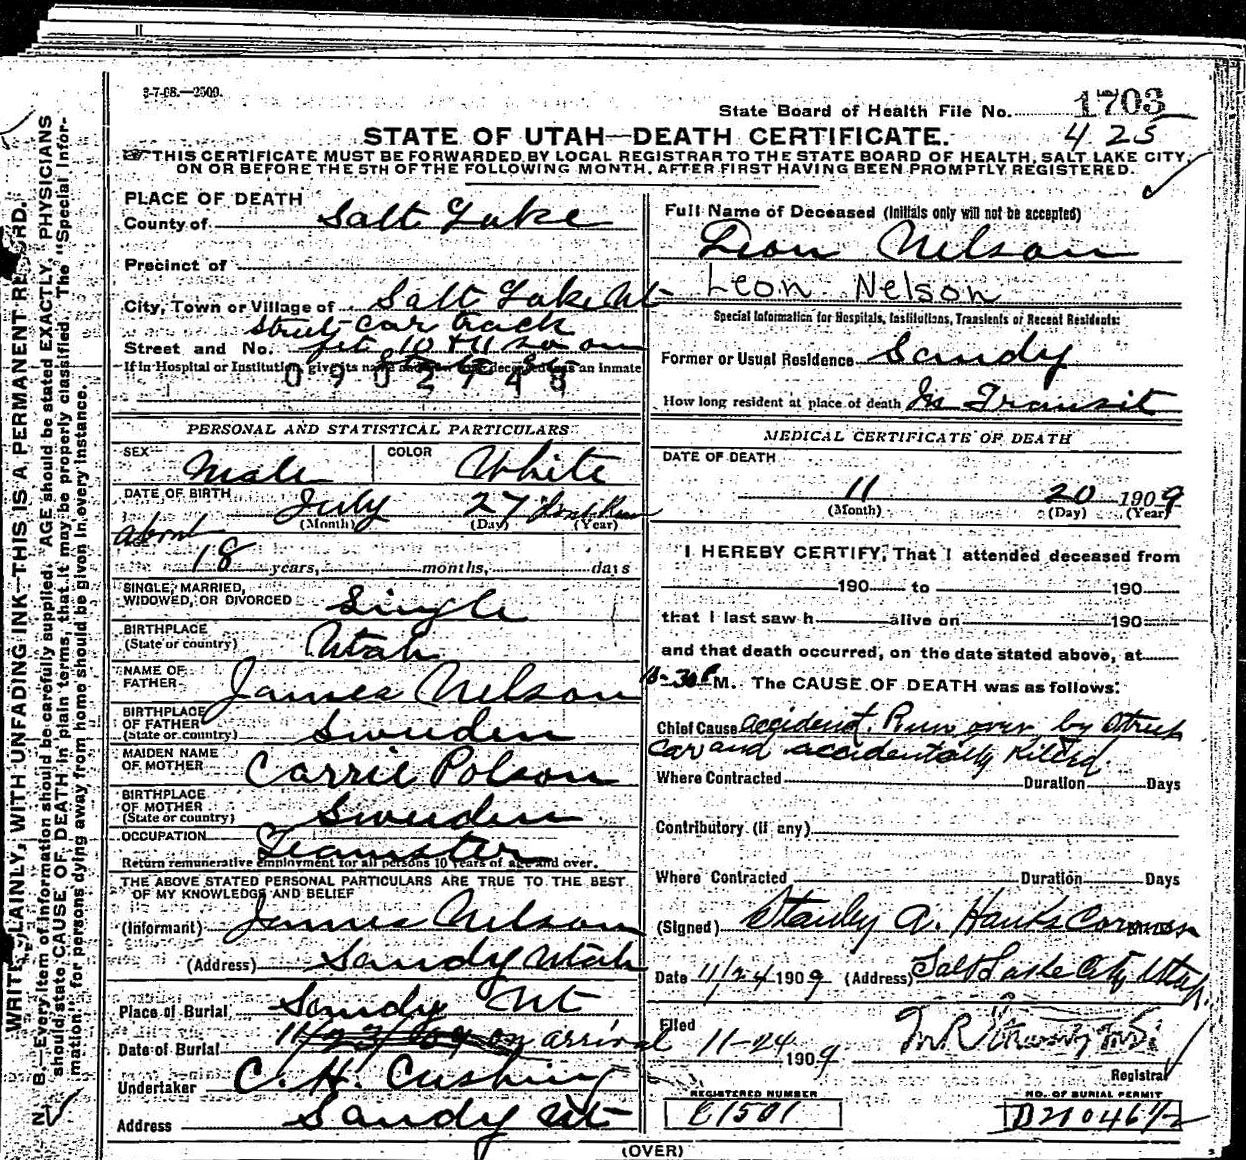 3-7-08.—2500.
State Board of Health File No. 1703
425
STATE OF UTAH—DEATH CERTIFICATE.
THIS CERTIFICATE MUST BE FORWARDED BY LOCAL REGISTRAR TO THE STATE BOARD OF HEALTH, SALT LAKE CITY,
ON OR BEFORE THE 5TH OF THE FOLLOWING MONTH, AFTER FIRST HAVING BEEN PROMPTLY REGISTERED.
WRITE PLAINLY, WITH UNFADING INK—THIS IS A PERMANENT RECORD.
N. B.—Every item of information should be carefully supplied. AGE should be stated EXACTLY. PHYSICIANS
should state CAUSE OF DEATH in plain terms, that it may be properly classified. The "Special Infor-
mation" for persons dying away from home should be given in every instance.
PLACE OF DEATH
County of Salt Lake
Precinct of
City, Town or Village of Salt Lake Ut
Street car track
Street and No. bet 10 & 11 so on
If in Hospital or Institution, give its name
an inmate
0902748
PERSONAL AND STATISTICAL PARTICULARS
SEX Male COLOR White
DATE OF BIRTH July 27 Dont Know
(Month) (Day) (Year)
about
18 years, months, days
SINGLE, MARRIED,
WIDOWED, OR DIVORCED Single
BIRTHPLACE
(State or country) Utah
NAME OF
FATHER James Nelson
BIRTHPLACE
OF FATHER
(State or country) Sweden
MAIDEN NAME
OF MOTHER Carrie Polson
BIRTHPLACE
OF MOTHER
(State or country) Sweden
OCCUPATION Teamster
Return remunerative employment for all persons 10 years of age and over.
THE ABOVE STATED PERSONAL PARTICULARS ARE TRUE TO THE BEST
OF MY KNOWLEDGE AND BELIEF
(Informant) James Nelson
(Address) Sandy Utah
Place of Burial Sandy Ut
Date of Burial 11/23/09 on arrival
Undertaker C. H. Cushing
Address Sandy Ut
Full Name of Deceased (Initials only will not be accepted)
Leon Nelson
Leon Nelson
Special Information for Hospitals, Institutions, Transients or Recent Residents:
Former or Usual Residence Sandy
How long resident at place of death In Transit
MEDICAL CERTIFICATE OF DEATH
DATE OF DEATH
11 20 1909
(Month) (Day) (Year)
I HEREBY CERTIFY, That I attended deceased from
190 to 190
that I last saw h alive on 190
and that death occurred, on the date stated above, at
M. The CAUSE OF DEATH was as follows:
Chief Cause accident. Run over by Street
Car and accidentally Killed.
Where Contracted Duration Days
Contributory (if any)
Where Contracted Duration Days
(Signed) Stanley A. Hanks Coroner
Date 11/24 1909 (Address) Salt Lake City Utah.
Filed 11-24 1909
Registrar
REGISTERED NUMBER
C1501
NO. OF BURIAL PERMIT
D21046 1/2
(OVER)